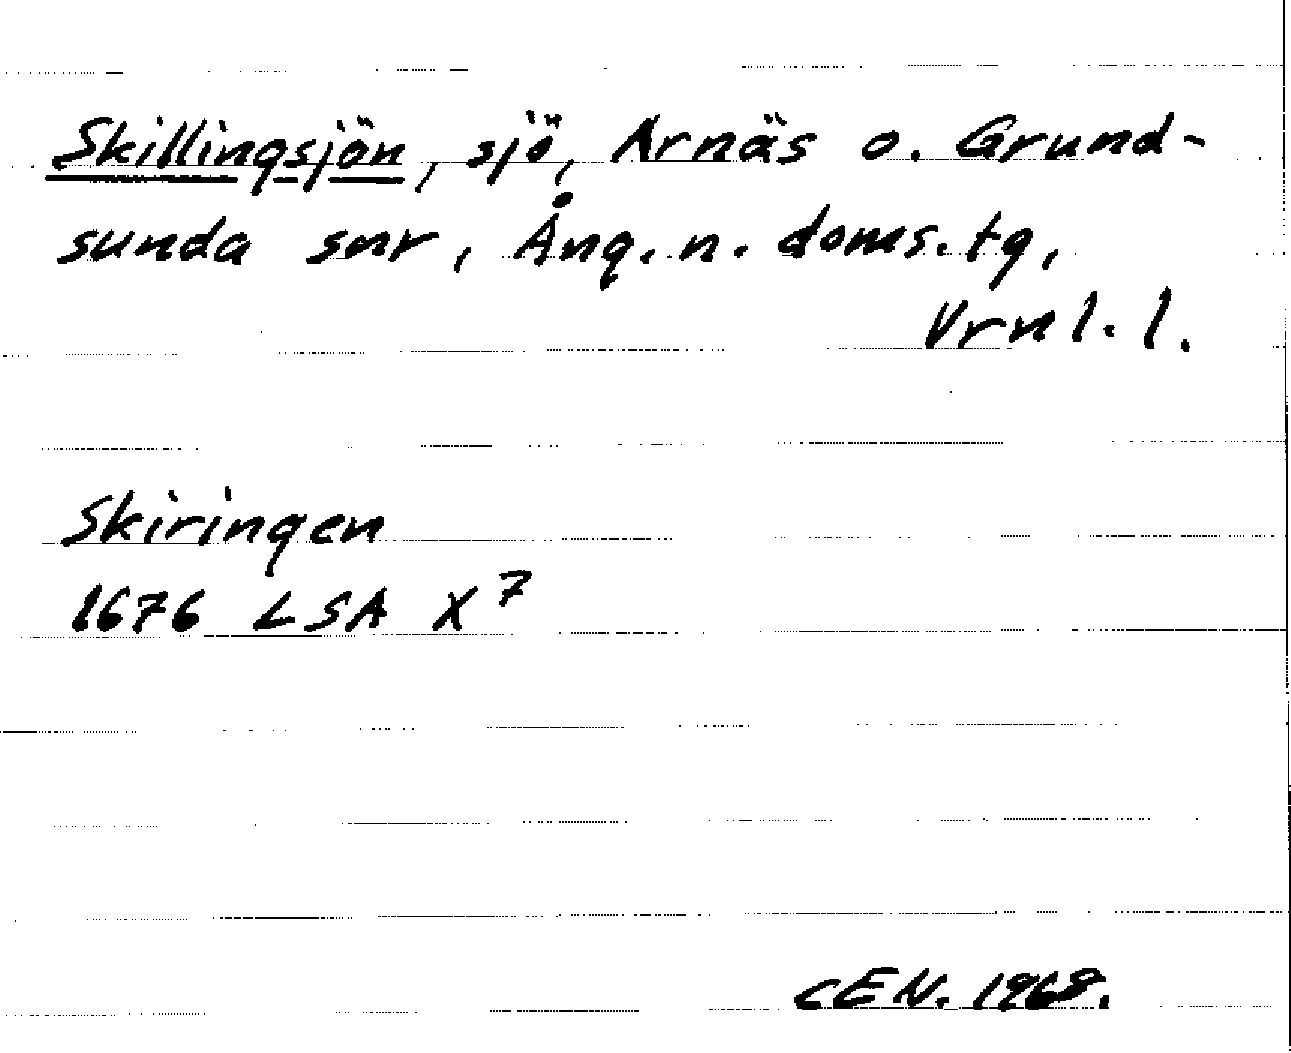 Skillingsjön, sjö, Arnäs o. Grund-
sunda snr, Ång. n. doms. tg,
Vrnl. l.
Skiringen
1676 LSA X 7
CEN. 1968.